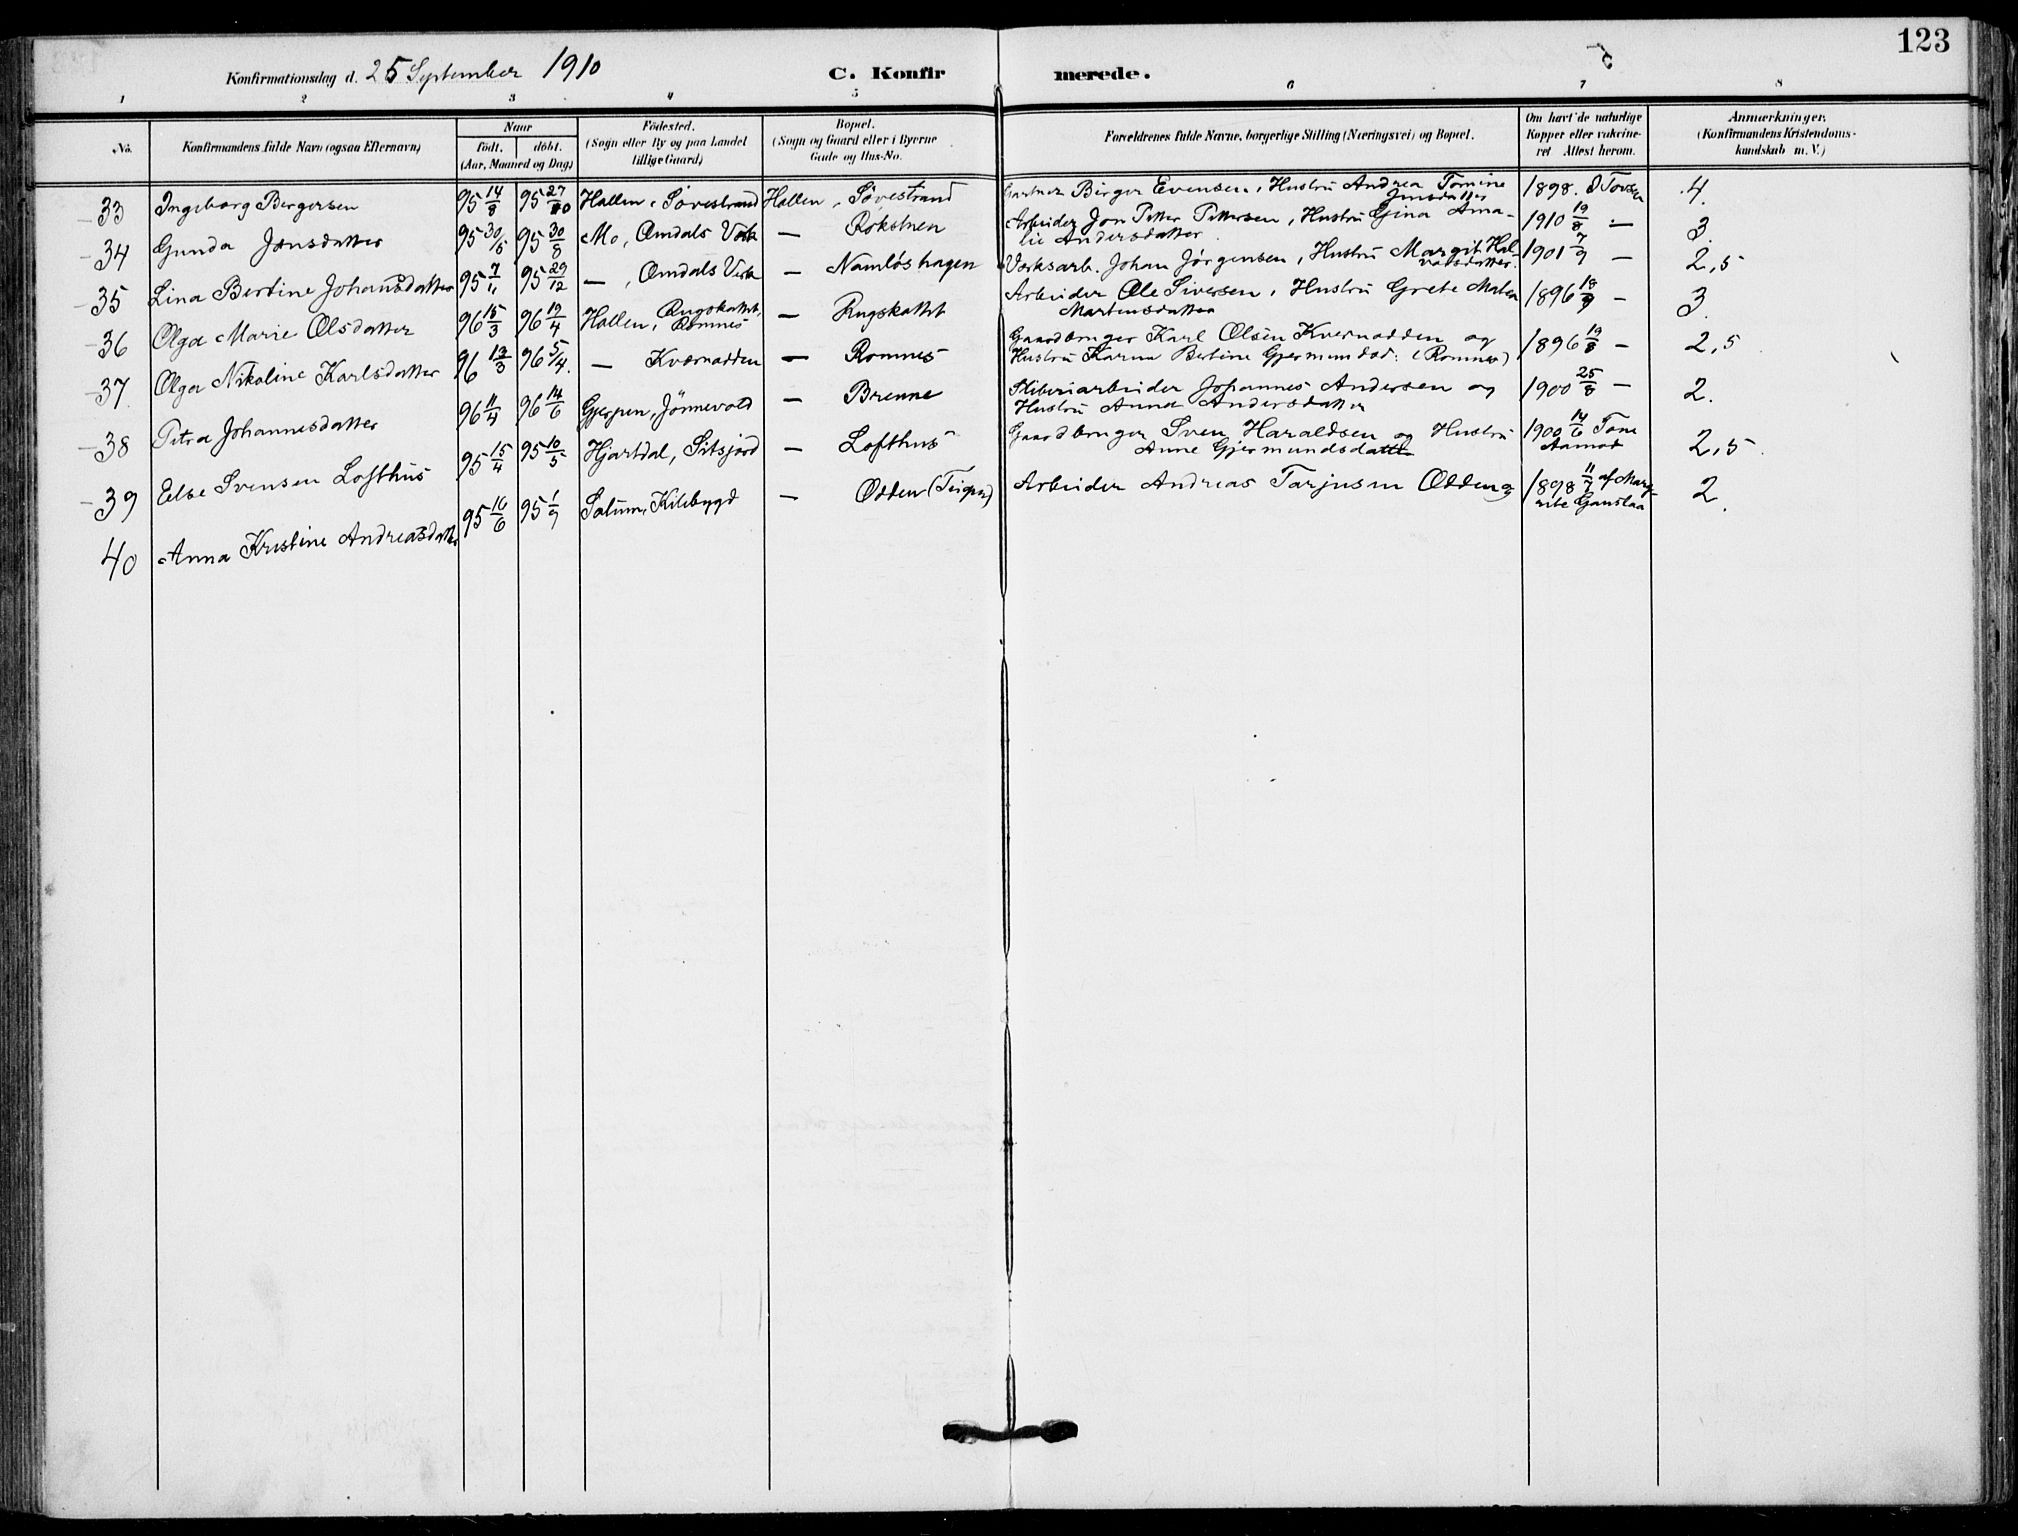 123
Konfirmationsdag d. 25 September 1910
C. Konfirmerede.
1 2 3 4 5 6 7 8
No.
Konfirmandens fulde Navn (ogsaa Efternavn)
Naar
födt. döbt.
(Aar, Maaned og Dag)
Födested.
(Sogn eller By og paa Landet
tillige Gaard)
Bopæl.
(Sogn og Gaard eller i Byerne
Gade og Hus-No.
Forældrenes fulde Navne, borgerlige Stilling (Næringsvei) og Bopæl.
Om havt de naturlige
Kopper eller vakcine-
ret Attest herom.
Anmærkninger,
(Konfirmandens Kristendoms-
kundskab m. V.)
33 Ingeborg Bergersen 95 14/8 95 27/10 Hollen, Søvestrand Hollen, Søvestrand Birger Evensen, Hustru Andrea Tomine 1898. 4.
34 Gunda Jonsdatter 95 30/5 95 30/8 Mo, Omdals Verk — Rokstnen Arbeider Jon Petter Pettersen, Hustru Gina Ama-
lie Andersdatter 1910 19/8 — 3.
35 Lina Bertine Johansdatter 95 7/11 95 29/12 — , Omdals Verk — Namløshagen Værksarb. Johan Jørgensen, Hustru Margit Hal-
vorsdatter. 1901 7/9 — 2,5
36 Olga Marie Olsdatter 96 15/3 96 19/4 Hollen, Rugskattet, Romnes — Rugskattet Arbeider Ole Siversen, Hustru Grete Malen
Martensdatter 1896 18/9 — 3.
37. Olga Nikoline Karlsdatter 96 13/3 96 5/4. — Kværnodden — Romnes Gaardbruger Karl Olsen Kvernodden og
Hustru Karen Bertine Gjermundsd: (Romnes) 1896 19/8 — 2,5
38 Petra Johannesdatter 96 11/4 96 14/6 Gjerpen, Jönnevold — Brenne Sliberiarbeider Johannes Andersen og
Hustru Anna Andersdatter 1900 25/8 — 2.
39 Else Svensen Lofthus 95 15/4 95 10/5 Hjartdal, Sitsjord — Lofthus Gaardbruger Sven Haraldsen og Hustru
Anne Gjermundsdatter 1900 14/6 Tone
Aamod 2,5
40 Anna Kristine Andreasdatter 95 16/6 95 1/9 Solum, Kilebygd — Odden (Teigen) Arbeider Andreas Tarjusen Odden og 1898 11/7 af Marg-
rete Gaustaa 2.